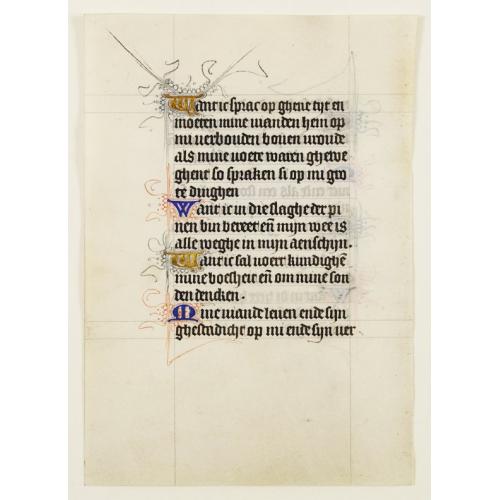 Want ic sprac op ghene tijt en
moeten mine vianden hem op
mi verbouden boven vroude
als mine voete waren ghewe
ghent so spraken si op mi gro
te dinghen
Want ic in die slaghe der pi
nen bin bereet eñ mijn wee is
alle weghe in mijn aenschijn.
Want ic sal voert kundighē
mine bosheit eñ om mine son
den dencken.
Mine viande leven ende sijn
ghestadicht op mi ende sijn ver